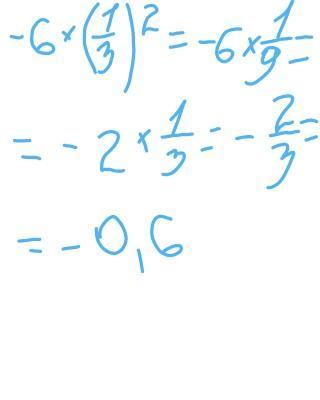 -6 × (1/3)² = -6 × 1/9 =
= -2 × 1/3 = -2/3 =
= -0,6